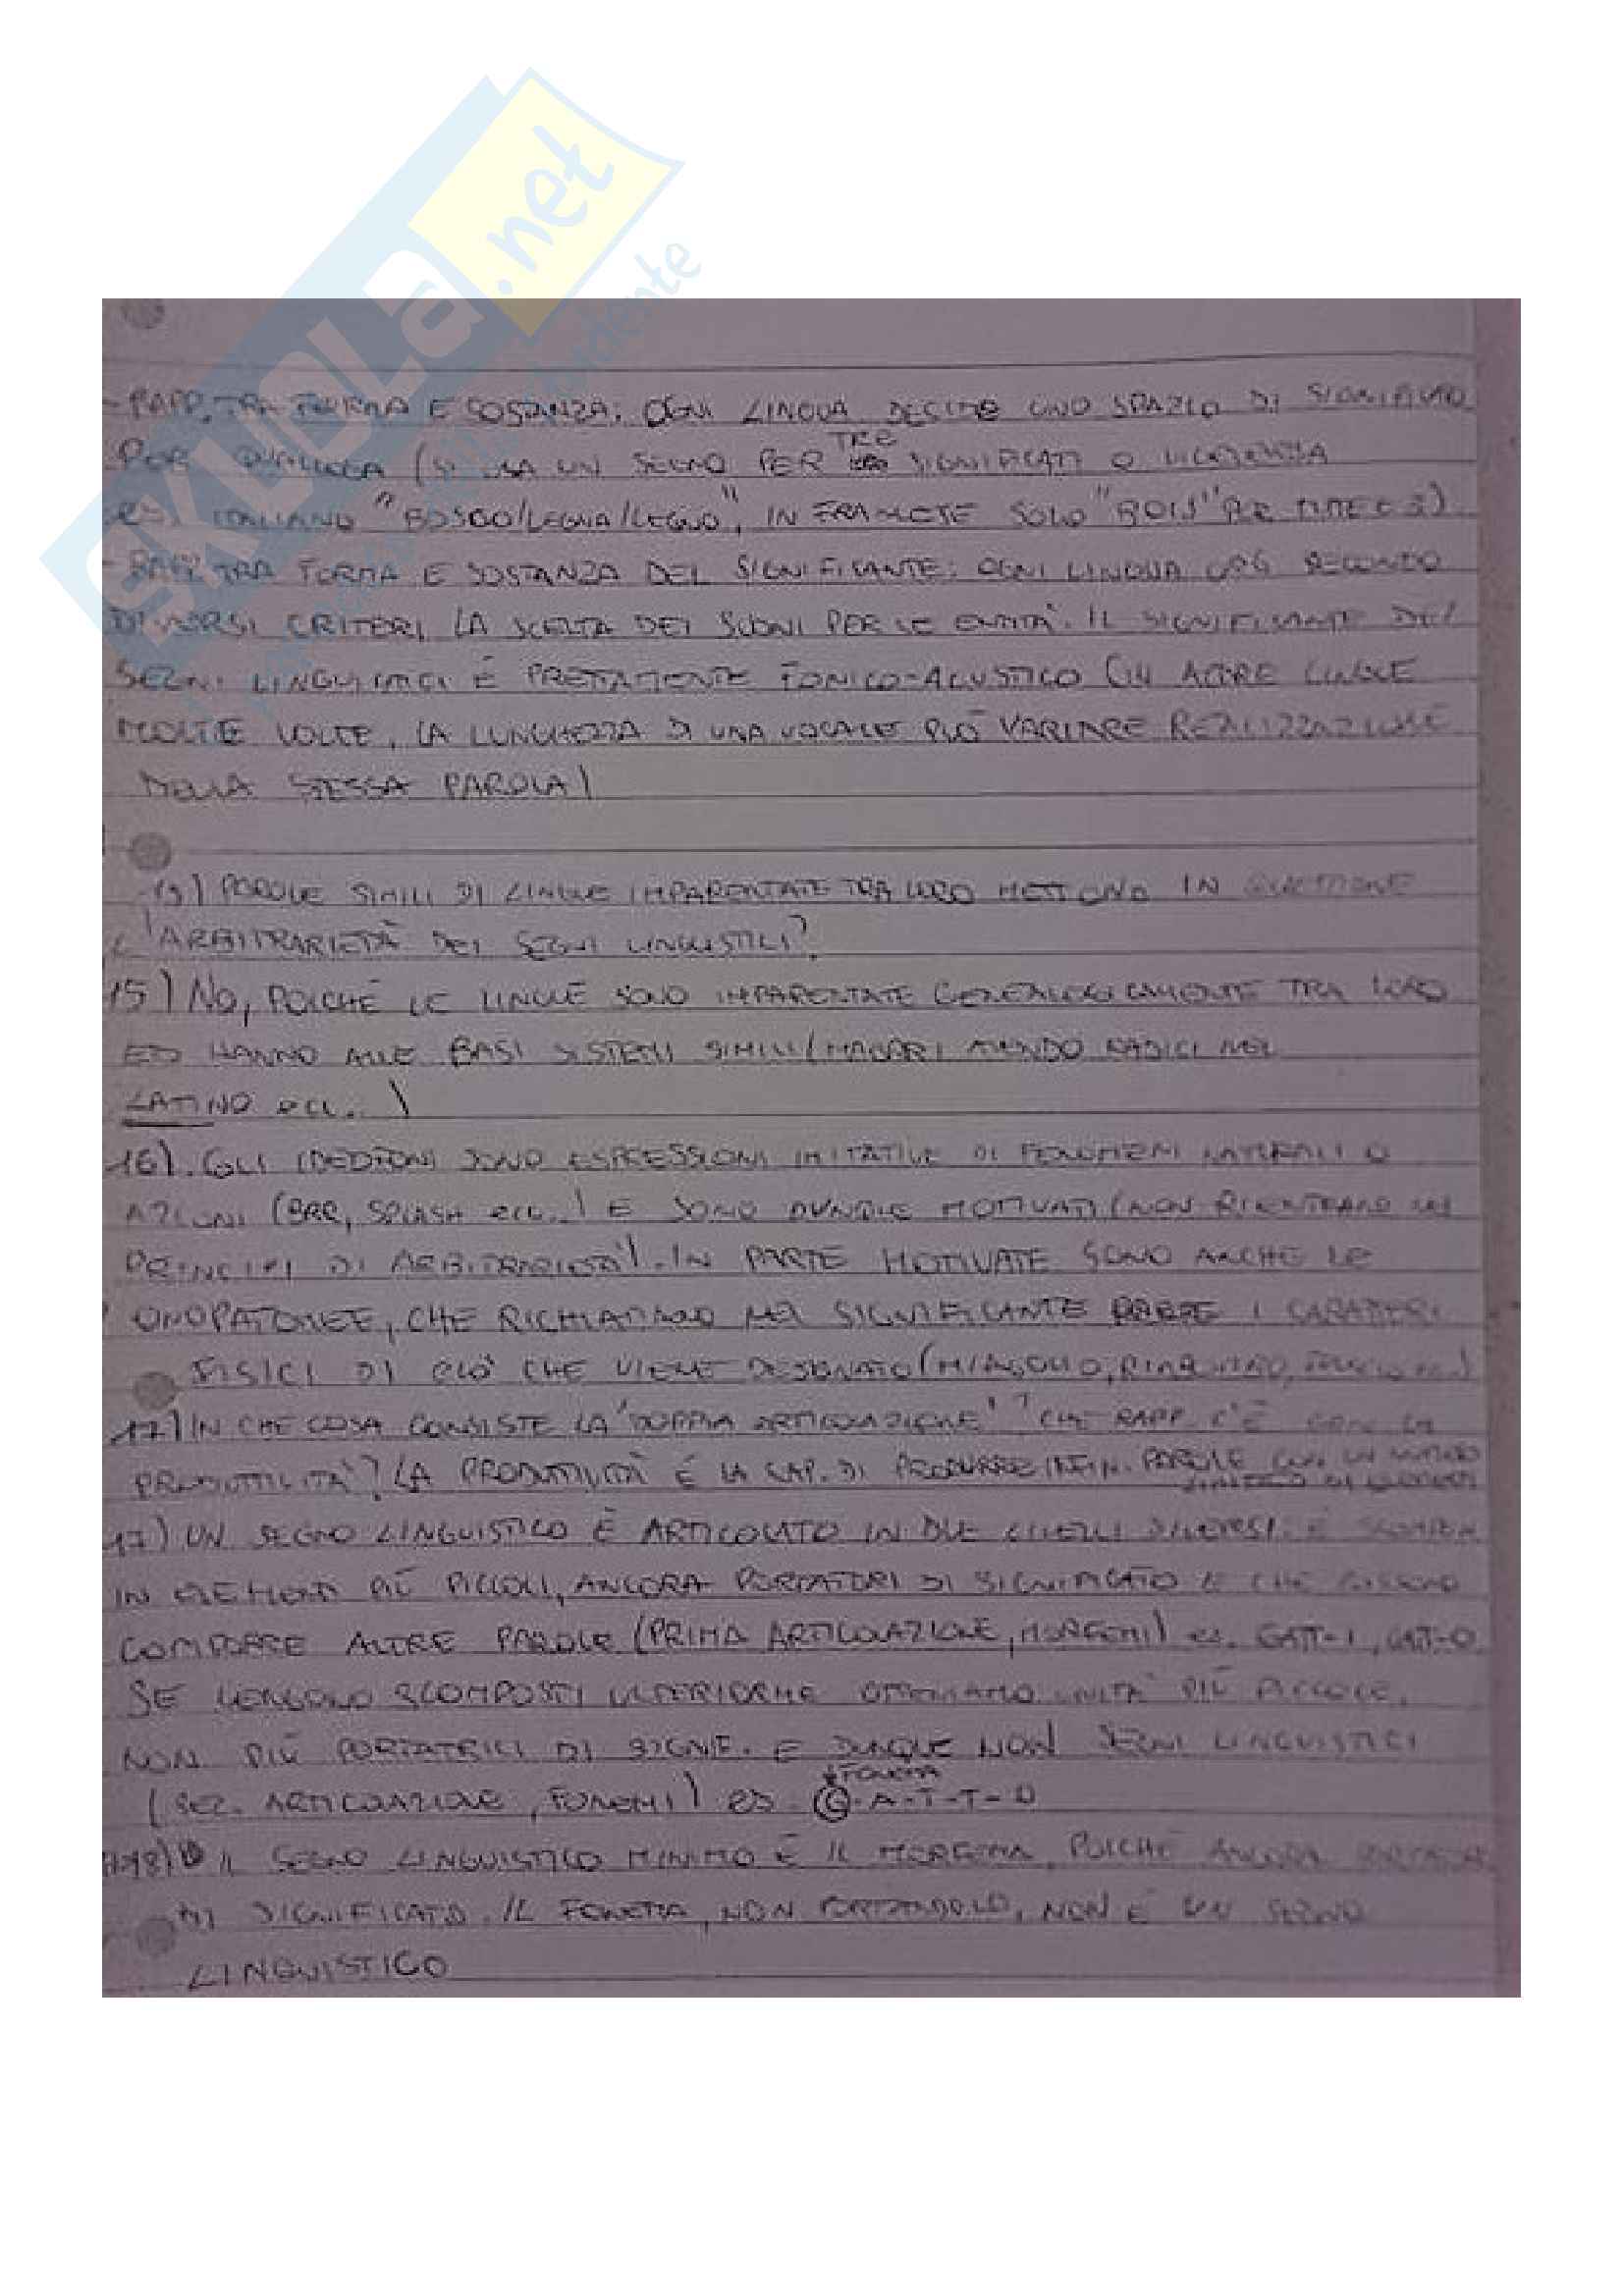 SKUOLa.net
- RAPP. TRA FORMA E SOSTANZA: OGNI LINGUA DECIDE UNO SPAZIO DI SIGNIFICATO
PER QUALCOSA (SI USA UN SEGNO PER TRE SIGNIFICATI O VICEVERSA
ES. ITALIANO "BOSCO/LEGNA/LEGNO", IN FRANCESE SOLO "BOIS" PER TUTTE E 3)
- RAPP. TRA FORMA E SOSTANZA DEL SIGNIFICANTE: OGNI LINGUA ORG. SECONDO
DIVERSI CRITERI, LA SCELTA DEI SUONI PER LE ENTITÀ. IL SIGNIFICANTE DEI
SEGNI LINGUISTICI È PRETTAMENTE FONICO-ACUSTICO (IN ALTRE LINGUE
MOLTE VOLTE, LA LUNGHEZZA DI UNA VOCALE PUÒ VARIARE REALIZZAZIONE
NELLA STESSA PAROLA)
15) PAROLE SIMILI DI LINGUE IMPARENTATE TRA LORO METTONO IN QUESTIONE
L'ARBITRARIETÀ DEI SEGNI LINGUISTICI?
15) NO, POICHÉ LE LINGUE SONO IMPARENTATE GENEALOGICAMENTE TRA LORO
ED HANNO ALLE BASI SISTEMI SIMILI (MAGARI AVENDO RADICI NEL
LATINO ecc..)
16). GLI IDEOFONI SONO ESPRESSIONI IMITATIVE DI FENOMENI NATURALI O
AZIONI (BRR, SPLASH ecc..) E SONO DUNQUE MOTIVATI (NON RIENTRANO IN
PRINCIPI DI ARBITRARIETÀ). IN PARTE MOTIVATE SONO ANCHE LE
ONOPATOMEE, CHE RICHIAMANO NEL SIGNIFICANTE I CARATTERI
FISICI DI CIÒ CHE VIENE DESIGNATO (MIAGOLIO, RIMBOMBO,
17) IN CHE COSA CONSISTE LA "DOPPIA ARTICOLAZIONE"? CHE RAPP. C'È CON LA
PRODUTTIVITÀ? LA PRODUTTIVITÀ È LA CAP. DI PRODURRE INFIN. PAROLE CON UN NUMERO
LIMITATO DI ELEMENTI
17) UN SEGNO LINGUISTICO È ARTICOLATO IN DUE LIVELLI DIVERSI: È SCOMPON.
IN ELEMENTI PIÙ PICCOLI, ANCORA PORTATORI DI SIGNIFICATO E CHE POSSONO
COMPORRE ALTRE PAROLE (PRIMA ARTICOLAZIONE, MORFEMI) es. GATT-I, GATT-O
SE VENGONO SCOMPOSTI ULTERIORM. OTTENIAMO UNITÀ PIÙ PICCOLE,
NON PIÙ PORTATRICI DI SIGNIF. E DUNQUE NON SEGNI LINGUISTICI
(SEC. ARTICOLAZIONE, FONEMI) es. G-A-T-T-O
FONEMA
18) IL SEGNO LINGUISTICO MINIMO È IL MORFEMA, POICHÉ ANCORA PORTATORE
DI SIGNIFICATO. IL FONEMA, NON PORTANDOLO, NON È UN SEGNO
LINGUISTICO